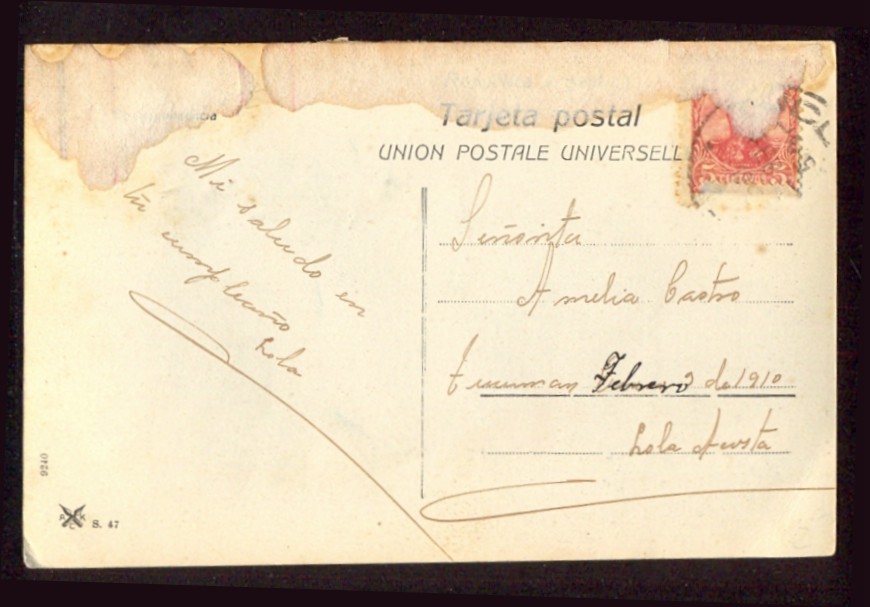 Tarjeta postal
UNION POSTALE UNIVERSELL
Mi saludo en
tu cumpleaño
Lola
Señorita
Amelia Castro
Tucuman Febrero 3 de 1910
Lola Acosta
9240
S. 47